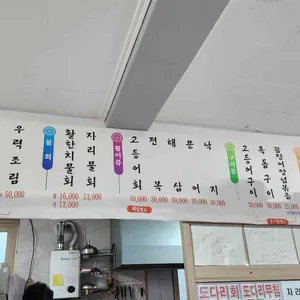 우럭조림
50,000
물회
활한치물회
활 16,000
냉 13,000
자리물회
13,000
활어류
고등어회
50,000
전복
30,000
해삼
30,000
문어
30,000
낙지
30,000
구이류
고등어구이
옥돔구이
30,000
도다리회
도다리무침
자리